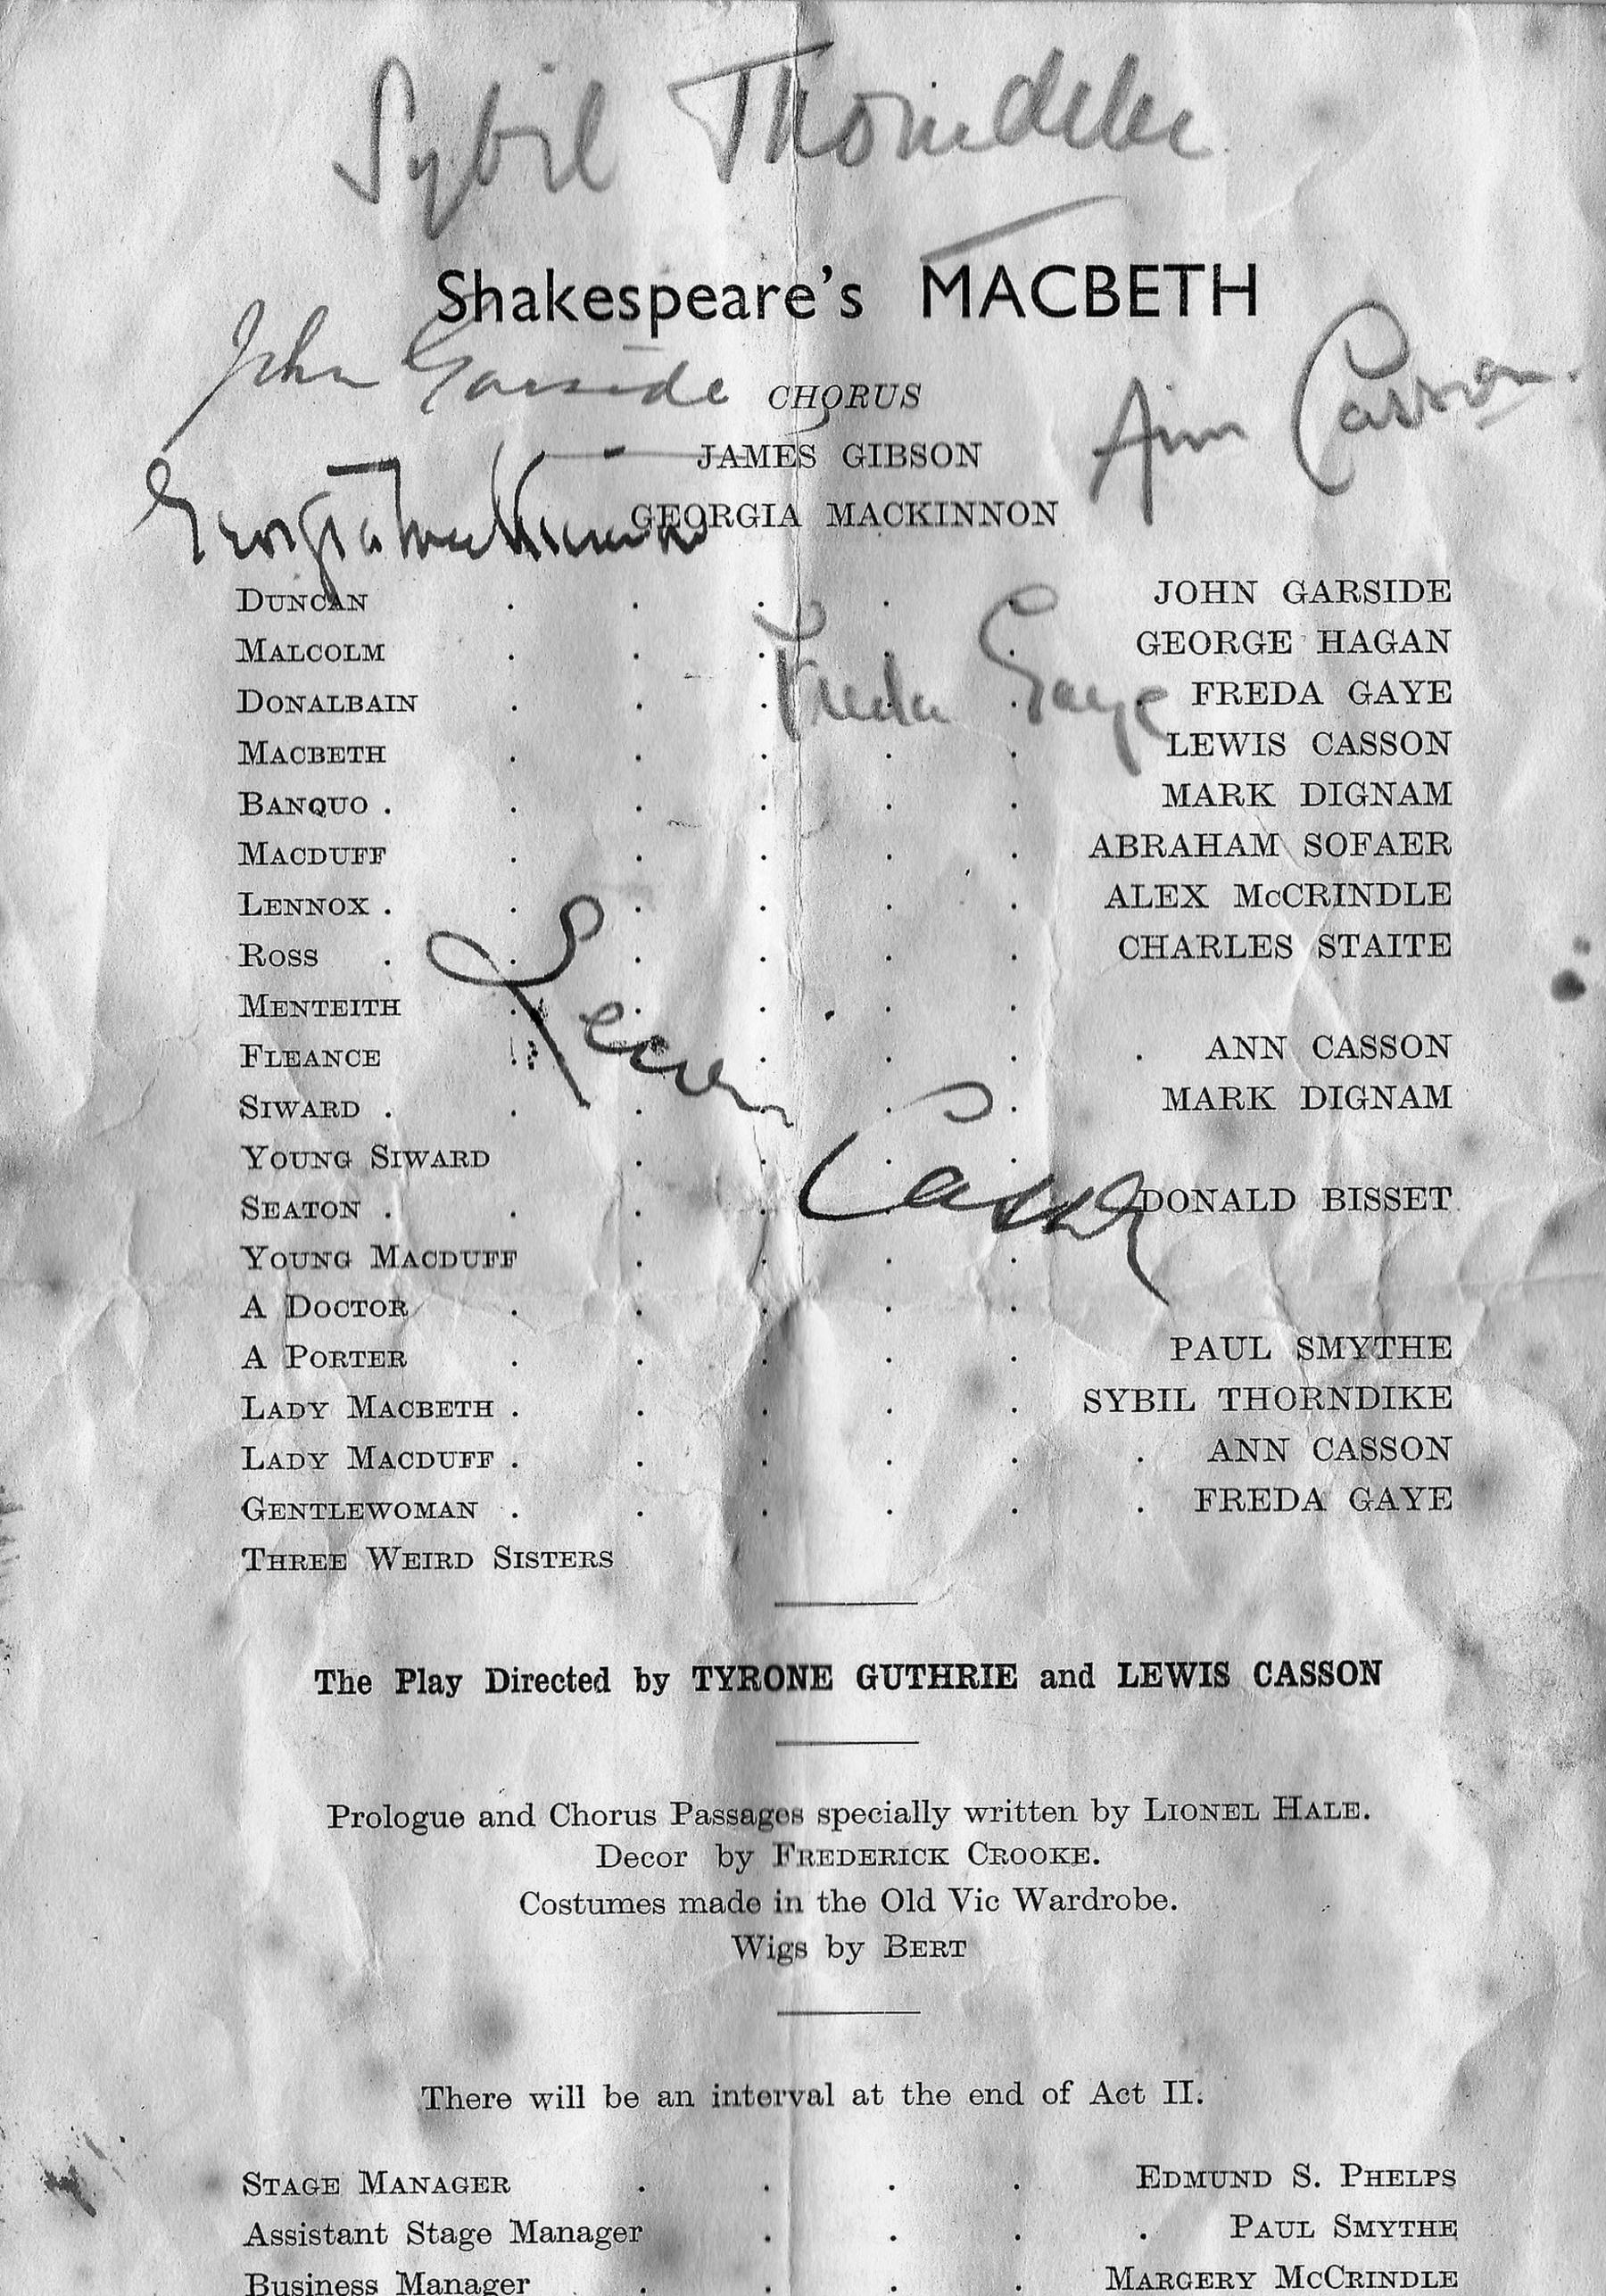 Sybil Thorndike
Shakespeare's MACBETH
John Garside
Ann Casson.
CHORUS
JAMES GIBSON
Georgia MacKinnon
GEORGIA MACKINNON
DUNCAN . . . . . JOHN GARSIDE
MALCOLM . . . . . GEORGE HAGAN
Freda Gaye
DONALBAIN . . . . . FREDA GAYE
MACBETH . . . . . LEWIS CASSON
BANQUO . . . . . . MARK DIGNAM
MACDUFF . . . . . ABRAHAM SOFAER
LENNOX . . . . . . ALEX McCRINDLE
ROSS . . . . . . CHARLES STAITE
MENTEITH . . . . .
Lewis Casson
FLEANCE . . . . . . ANN CASSON
SIWARD . . . . . . MARK DIGNAM
YOUNG SIWARD . . . .
SEATON . . . . . . DONALD BISSET
YOUNG MACDUFF . . . .
A DOCTOR . . . . .
A PORTER . . . . . PAUL SMYTHE
LADY MACBETH . . . . . SYBIL THORNDIKE
LADY MACDUFF . . . . . . ANN CASSON
GENTLEWOMAN . . . . . . FREDA GAYE
THREE WEIRD SISTERS
The Play Directed by TYRONE GUTHRIE and LEWIS CASSON
Prologue and Chorus Passages specially written by LIONEL HALE.
Decor by FREDERICK CROOKE.
Costumes made in the Old Vic Wardrobe.
Wigs by BERT
There will be an interval at the end of Act II.
STAGE MANAGER . . . . EDMUND S. PHELPS
Assistant Stage Manager . . . . PAUL SMYTHE
Business Manager . . . . MARGERY McCRINDLE